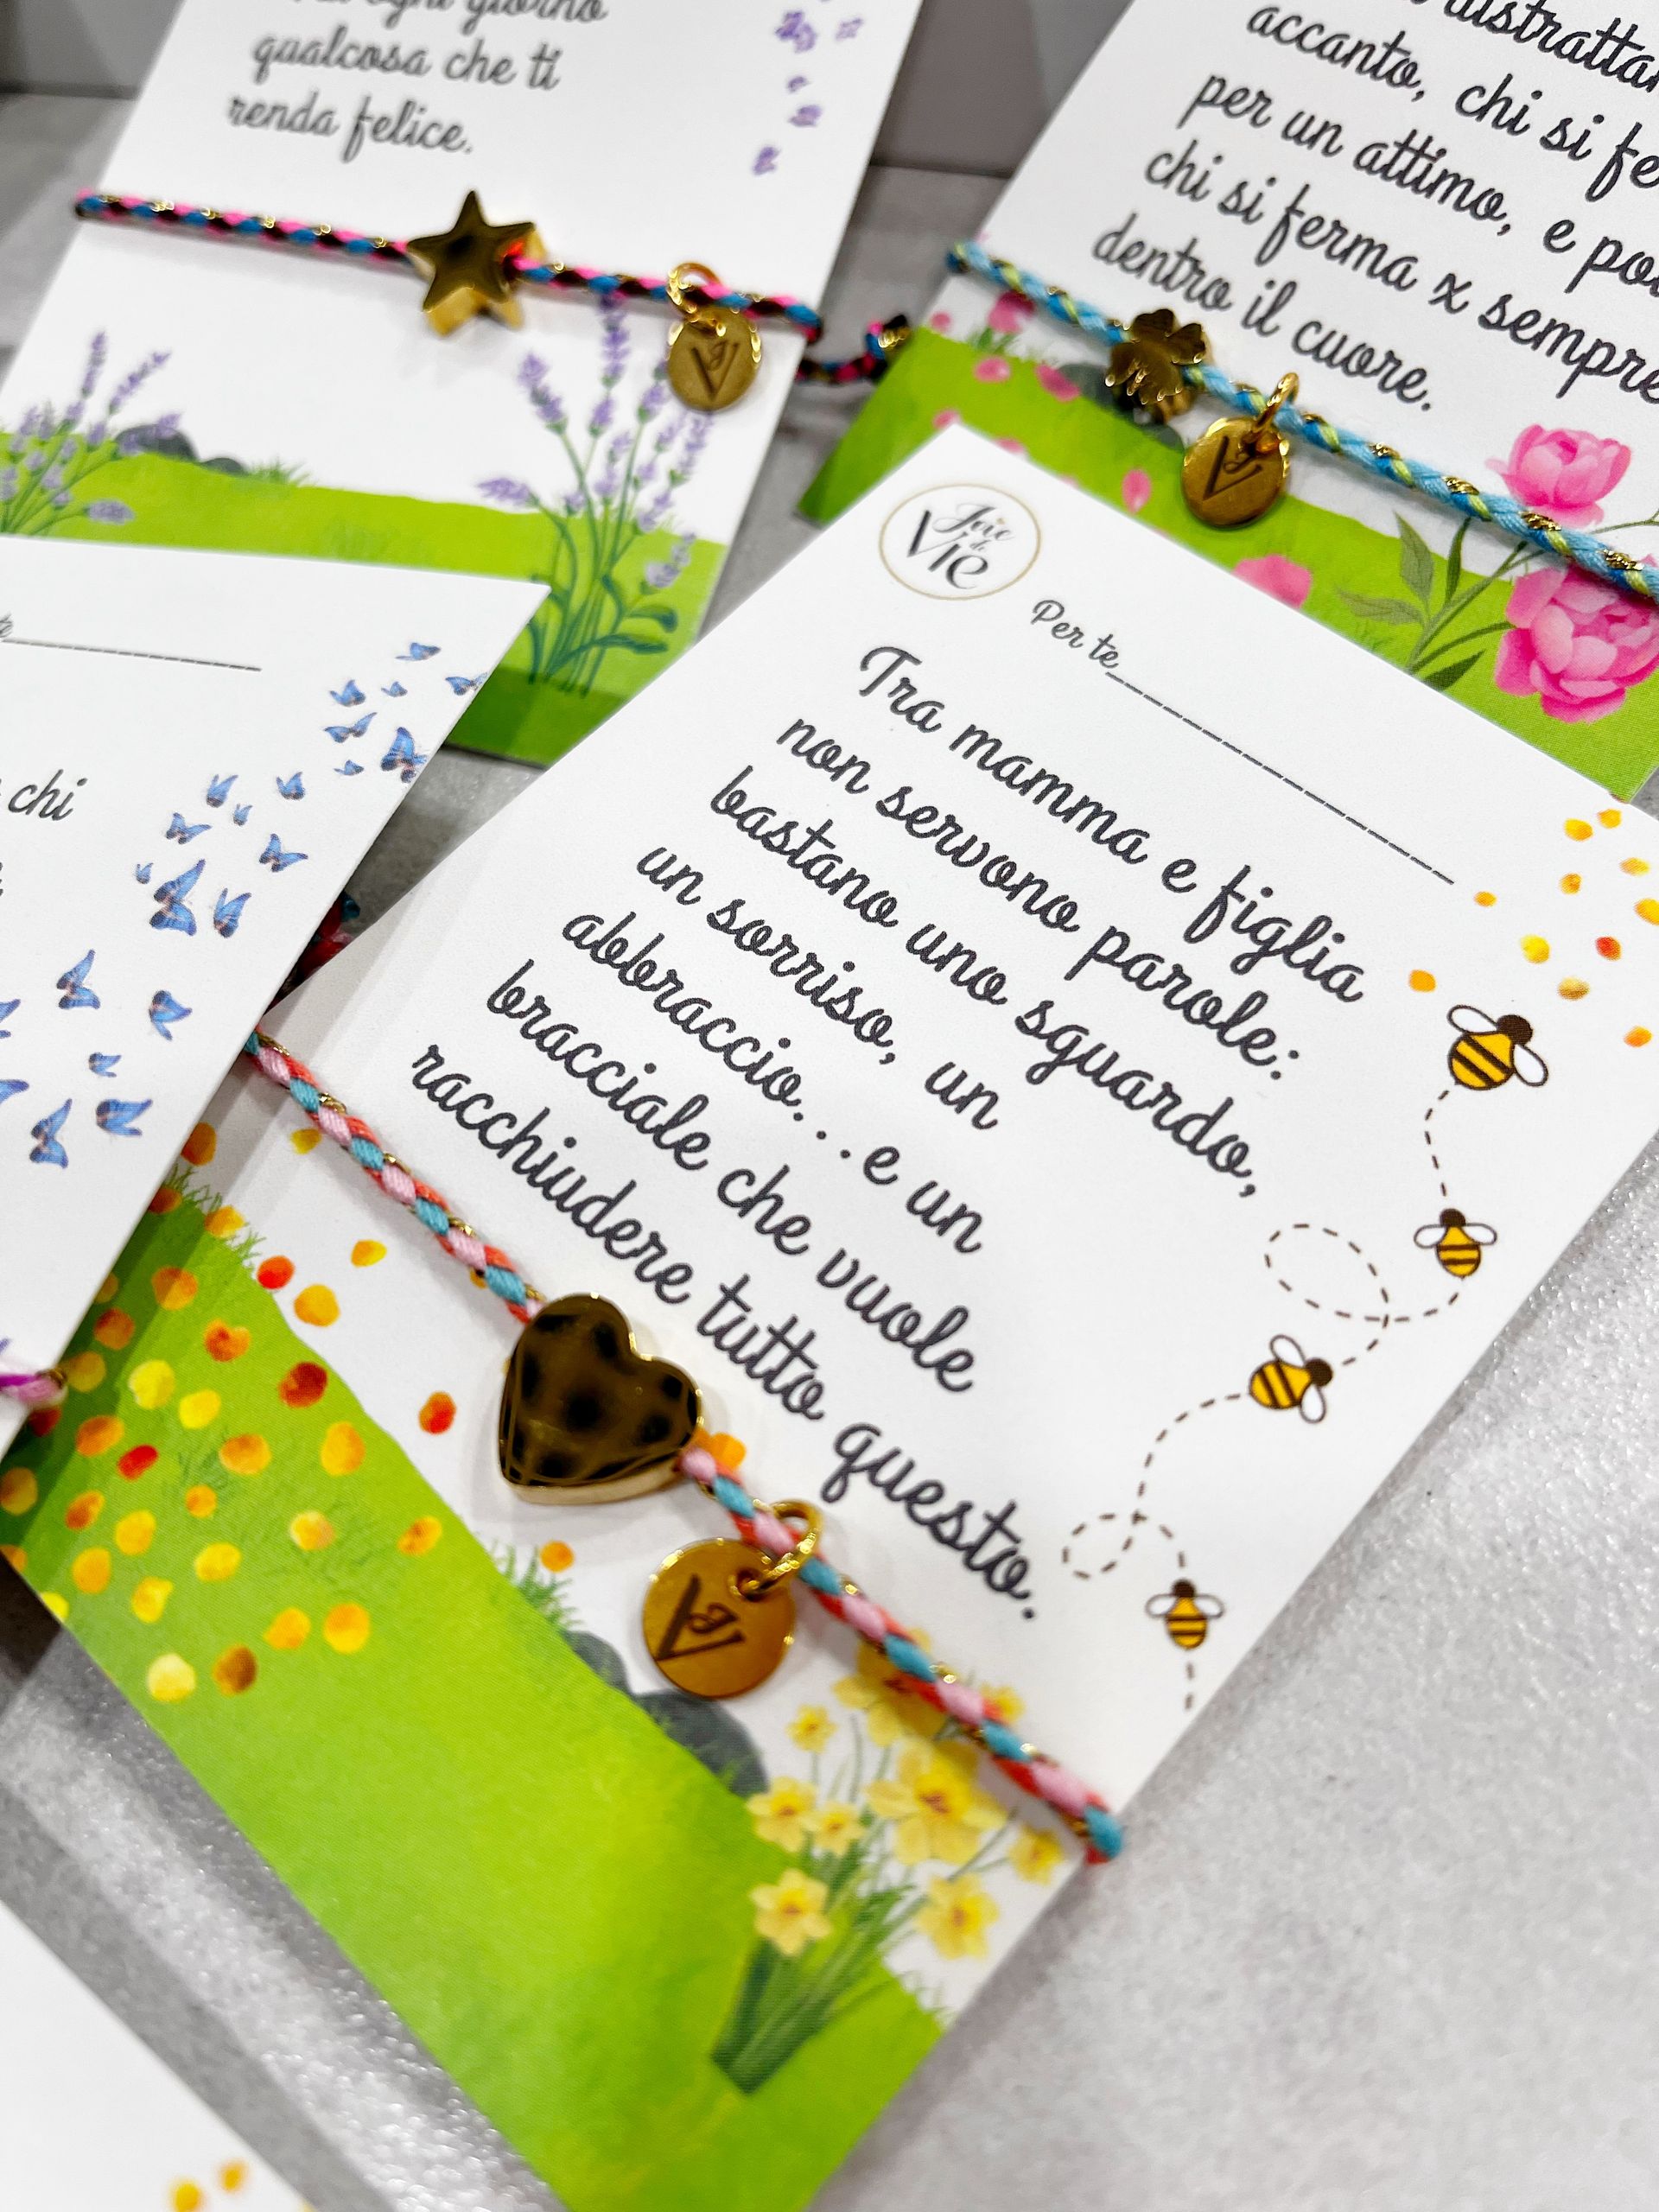 ogni giorno
qualcosa che ti
renda felice.
distratta
accanto, chi si fe
per un attimo, e po
chi si ferma x sempre
dentro il cuore.
Joie
de
Vie
Per te
Tra mamma e figlia
non servono parole:
bastano uno sguardo,
un sorriso, un
abbraccio...e un
bracciale che vuole
racchiudere tutto questo.
chi